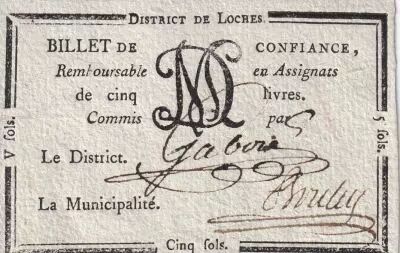 DISTRICT DE LOCHES.
BILLET DE CONFIANCE,
Remboursable en Assignats
de cinq livres.
Commis par
Le District.
La Municipalité.
V ſols.
5 ſols.
Cinq ſols.